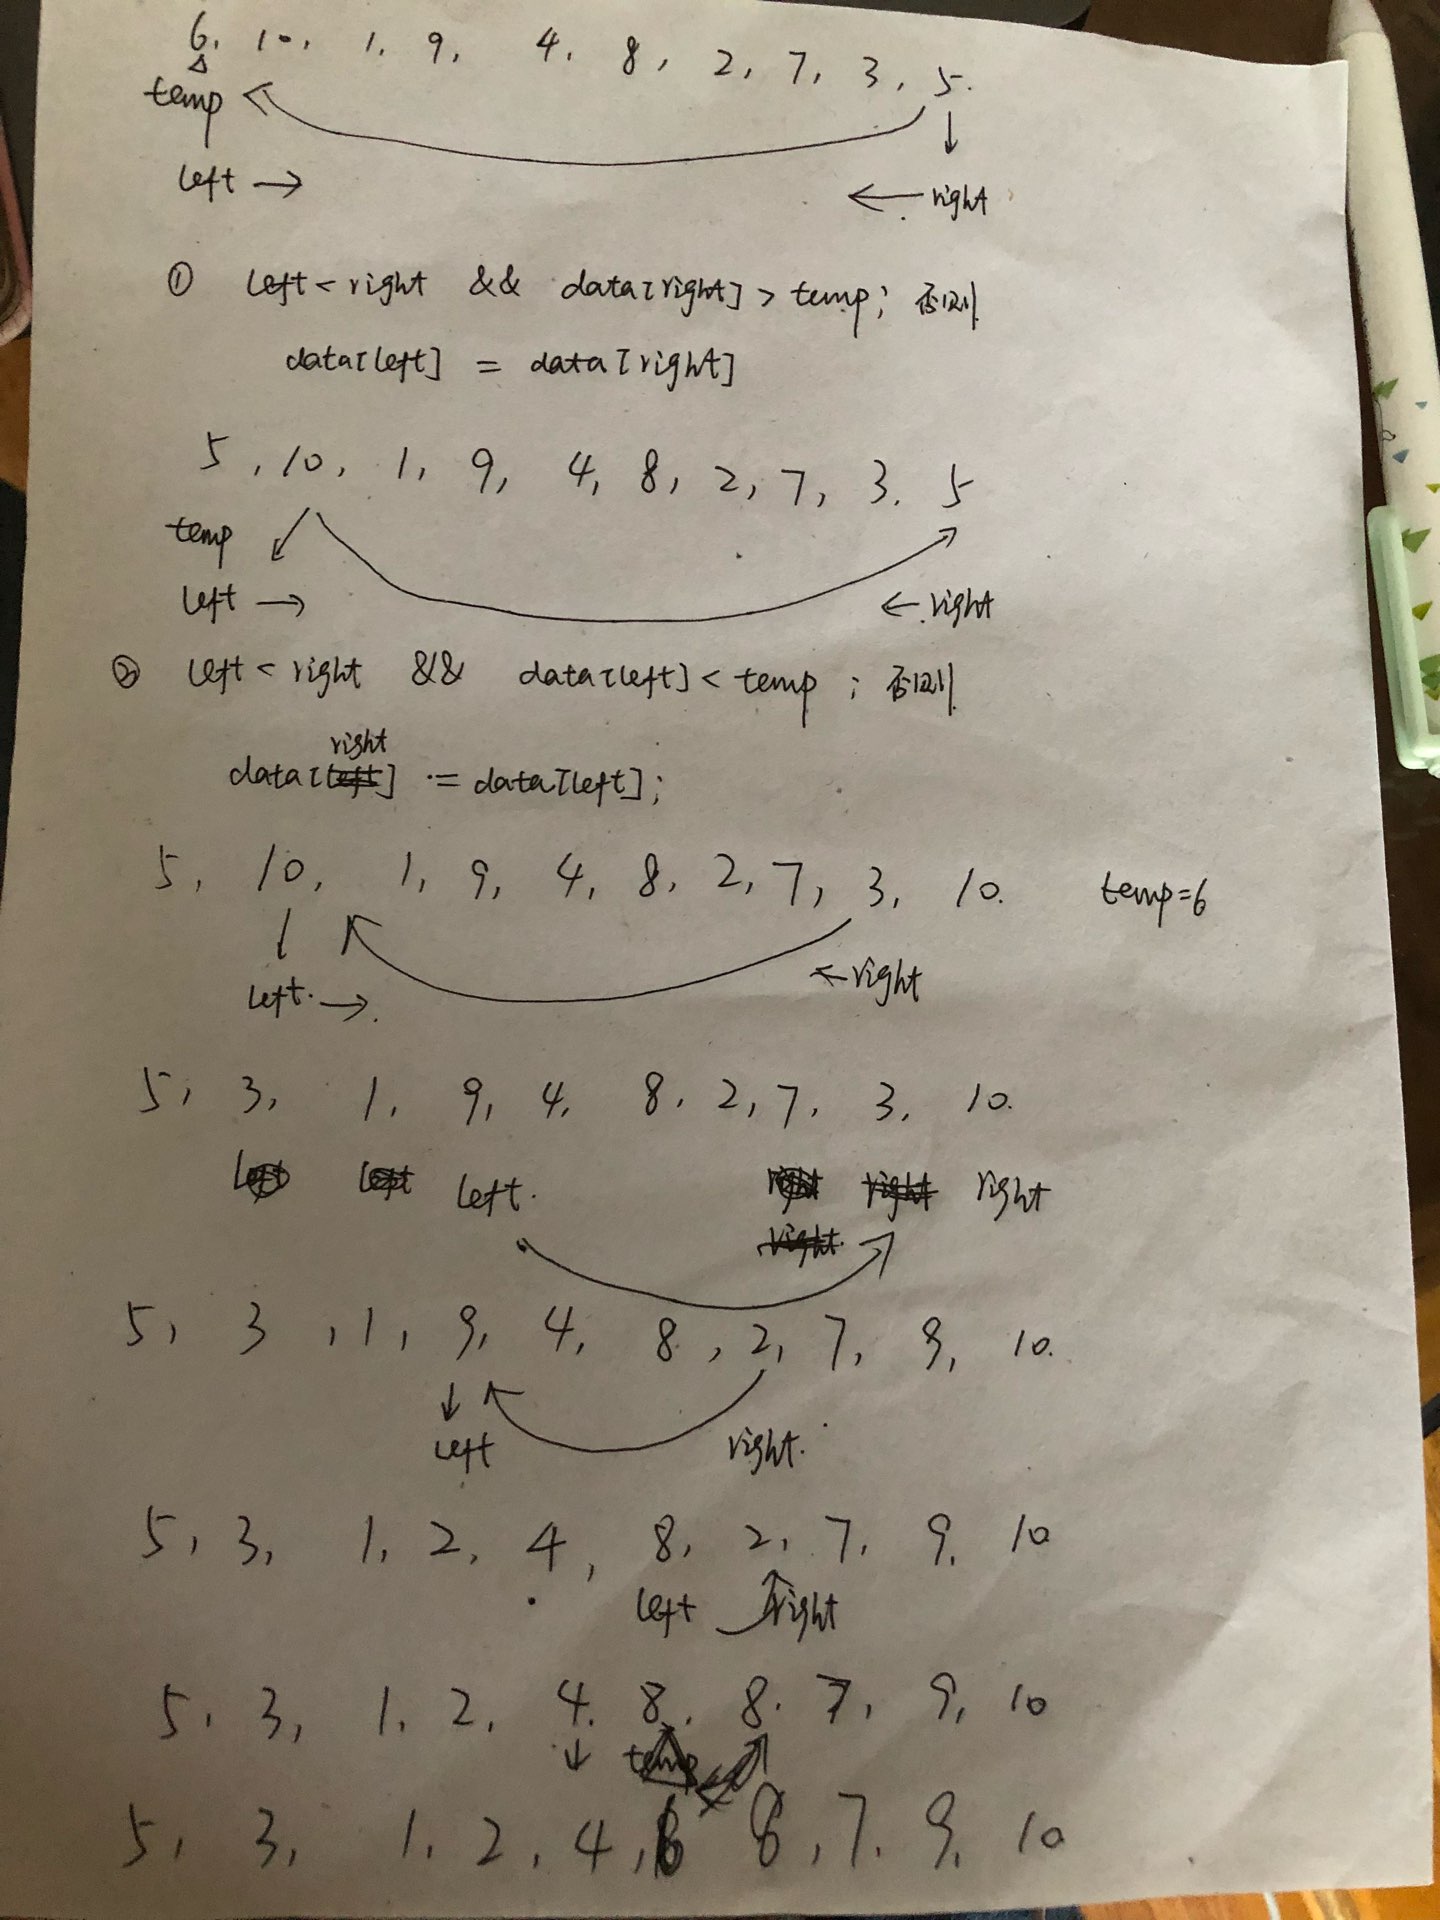 6, 10, 1, 9, 4, 8, 2, 7, 3, 5.
temp
left → ← right
① left < right && data[right] > temp; 否则
data[left] = data[right]
5, 10, 1, 9, 4, 8, 2, 7, 3. 5
temp
left → ← right
② left < right && data[left] < temp; 否则
right
data[left] = data[left];
5, 10, 1, 9, 4, 8, 2, 7, 3, 10. temp=6
left. → ← right
5, 3, 1, 9, 4, 8, 2, 7, 3, 10.
left left left. right right right
right.
5, 3, 1, 9, 4, 8, 2, 7, 9, 10.
left right.
5, 3, 1, 2, 4, 8, 2, 7, 9, 10
left right
5, 3, 1, 2, 4, 8, 8, 7, 9, 10
temp
5, 3, 1, 2, 4, 6 8, 7, 9, 10